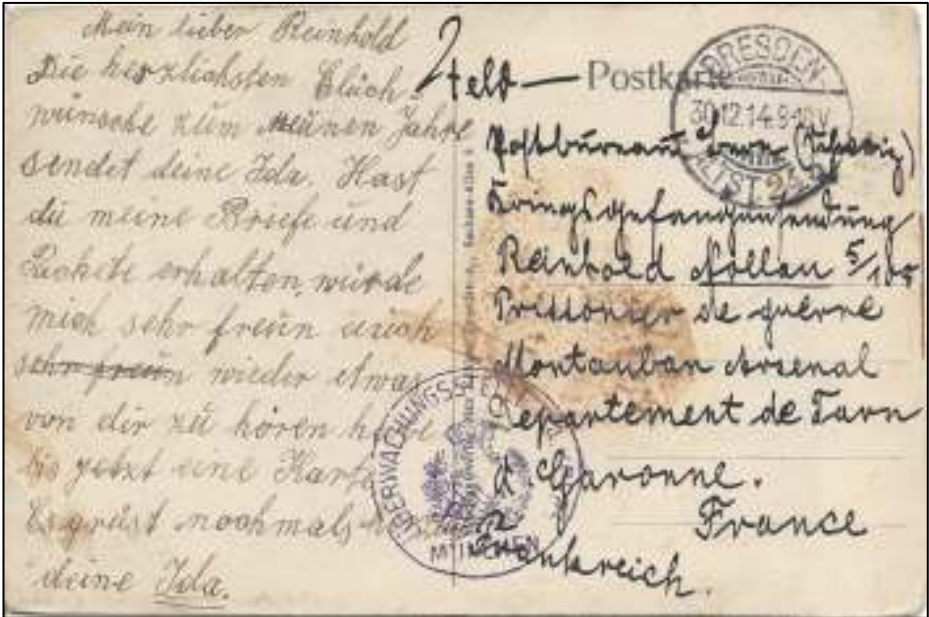 Mein lieber Reinhold
Die herzlichsten Glück-
wünsche zum neuen Jahre
sendet deine Ida. Hast
du meine Briefe und
Packete erhalten, würde
mich sehr freün auch
sehr freün wieder etwas
von dir zu hören habe
bis jetzt eine Karte
Es grüst nochmals
deine Ida.
Feld- Postkarte
DRESDEN
30.12.14.9-10V.
Postbureau Bern (Schweiz)
Kriegsgefangensendung
Reinhold 5/105
Prissonier de guerre
Montauban Arsenal
Departement de Tarn
d Garonne.
France
Frankreich.
ÜBERWACHUNGSSTELLE
MÜNCHEN